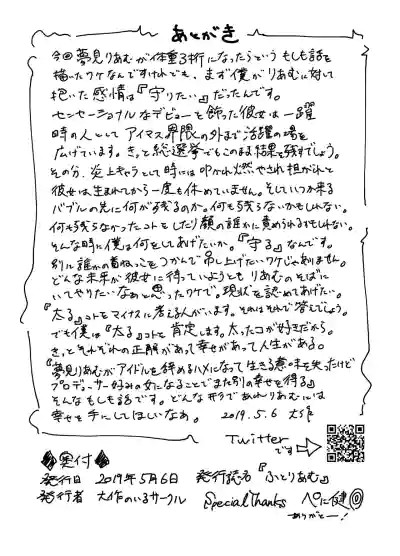 あとがき
今回夢見りあむが体重3桁になったらというもしも話を
描いたワケなんですけれども、まず僕がりあむに対して
抱いた感情は『守りたい』だったんです。
センセーショナルなデビューを飾った彼女は一躍
時の人としてアイマス界隈の外まで活躍の場を
広げています。きっと総選挙でもこのまま結果を残すでしょう。
その分、炎上キャラとして時には叩かれ燃やされ担がれと
彼女は生まれてから一度も休めていません。そしていつか来る
バブルの先に何が残るのか。何も残らないかもしれない。
何も残らなかったコトをしたり顔の誰かに責められるかもしれない。
そんな時に僕は何をしてあげたいか。『守る』なんです。
別に誰かの首ねっこをつかんで吊し上げたいワケじゃありません。
どんな未来が彼女に待っていようともりあむのそばに
いてやりたいなあと思ったワケで。現状を認めてあげたい。
『太る』コトをマイナスに考える人がいます。それはそれで答えでしょう。
でも僕は『太る』コトを肯定します。太ったコが好きだから。
きっとそれぞれの正解があって幸せがあって人生がある。
『夢見りあむがアイドルを辞めるハメになって生きる意味を失ったけど
プロデューサー好みの女になることでまた別の幸せを得る』
そんなもしも話です。どんな形であれりあむには
幸せを手にしてほしいなあ。 2019.5.6 大作
Twitter
です
◆奥付◆
発行日 2019年5月6日 発行誌名『ふとりあむ』
発行者 大作のいるサークル Special Thanks ぺに健
ありがとー!